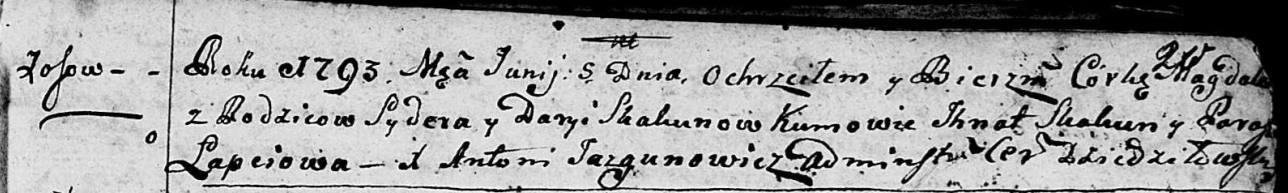 Łosow - -
Roku 1793. Mcã Junij: 5 Dnia, Ochrzciłem y Bierzm̃ Córkę Magdale
z Rodzicow Sydera y Daryi Skakunow Kumowie Ihnat Skakun y Para
Łapciowa - X Antoni Jazgunowicz Adminstr̃ Cer̃ Dziedziłows